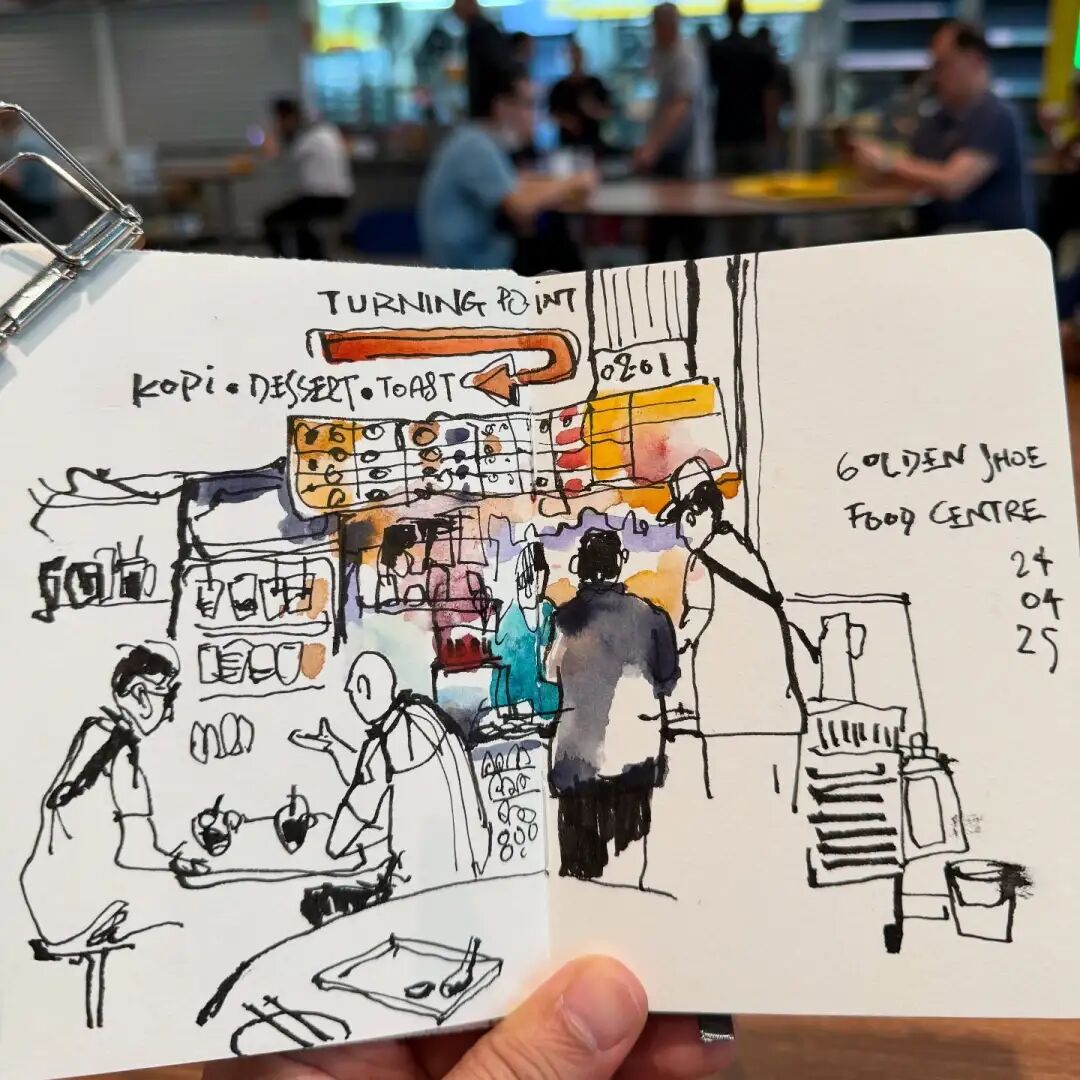 TURNING POINT
KOPI • DESSERT • TOAST
02-01
GOLDEN SHOE
FOOD CENTRE
24
04
25